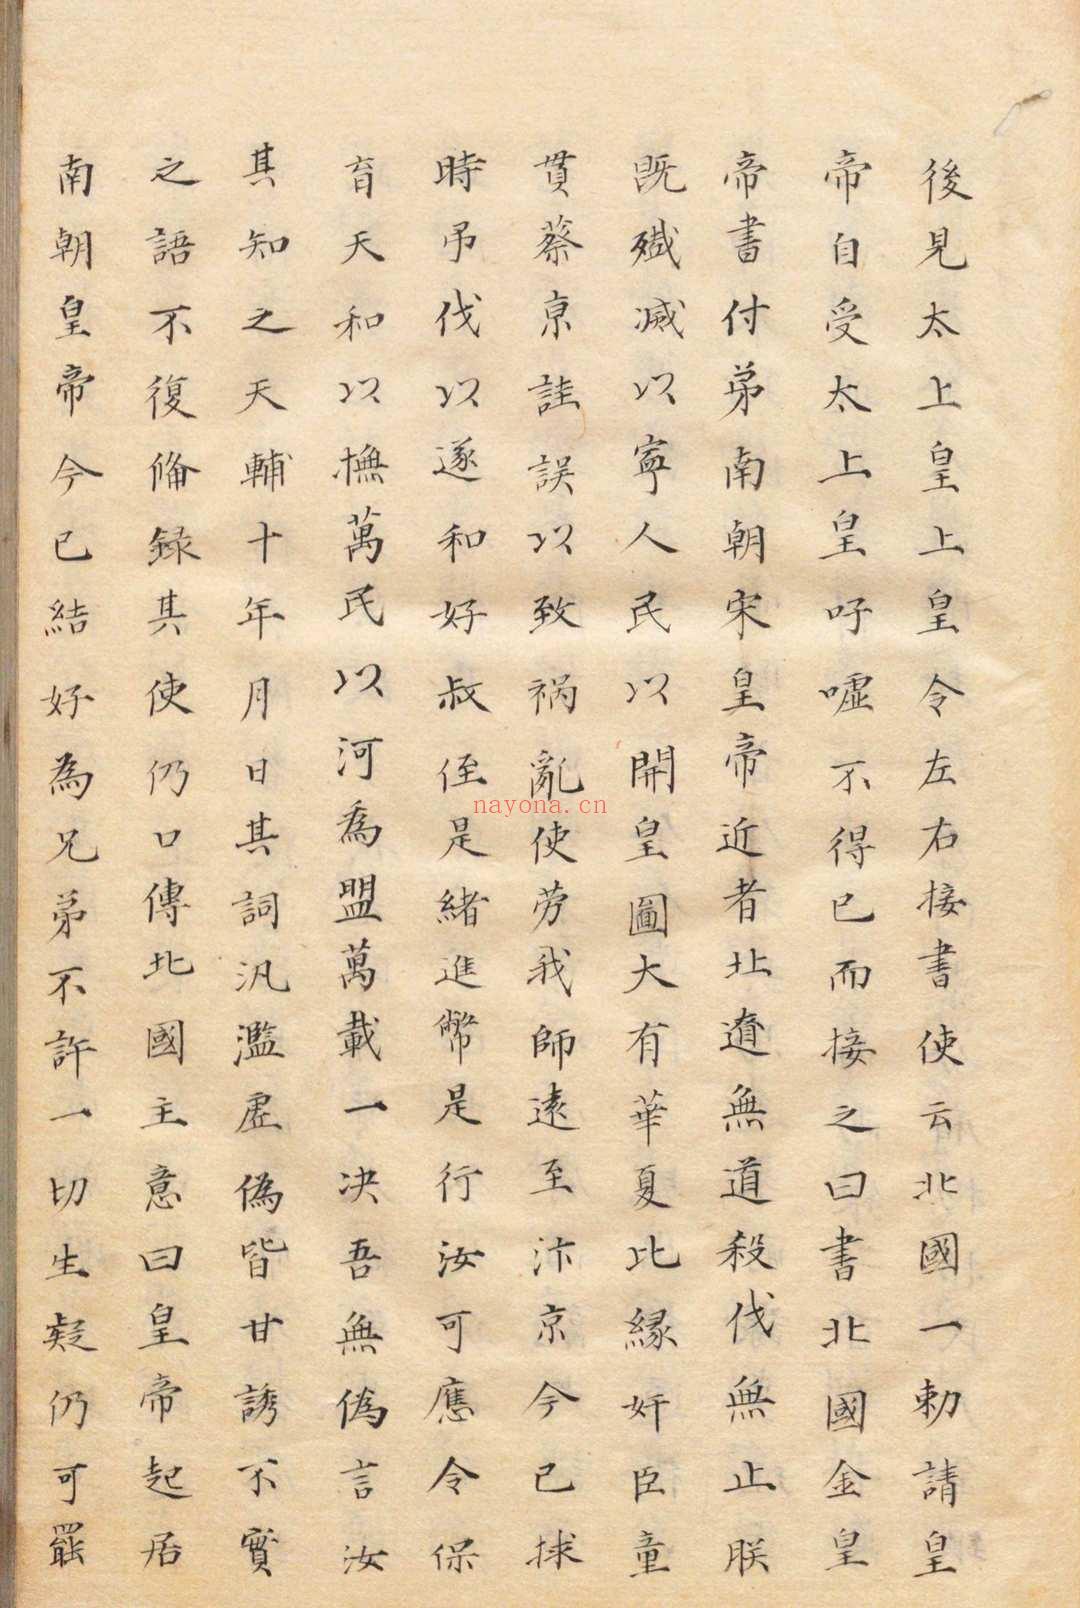 後見太上皇上皇令左右接書使云北國一勅請皇
帝自受太上皇吁噓不得已而接之曰書北國金皇
帝書付弟南朝宋皇帝近者北遼無道殺伐無止朕
既殱滅以寧人民以開皇圖大有華夏比緣奸臣童
貫蔡京詿誤以致禍亂使劳我師遠至汴京今已救
時吊伐以遂和好叔侄是緒進幣是行汝可應令保
育天和以撫萬民以河為盟萬載一決吾無偽言汝
其知之天輔十年月日其詞汎濫虛偽皆甘誘不實
之語不復俻録其使仍口傳北國主意曰皇帝起居
南朝皇帝今已結好為兄弟不許一切生疑仍可罷
nayona.cn